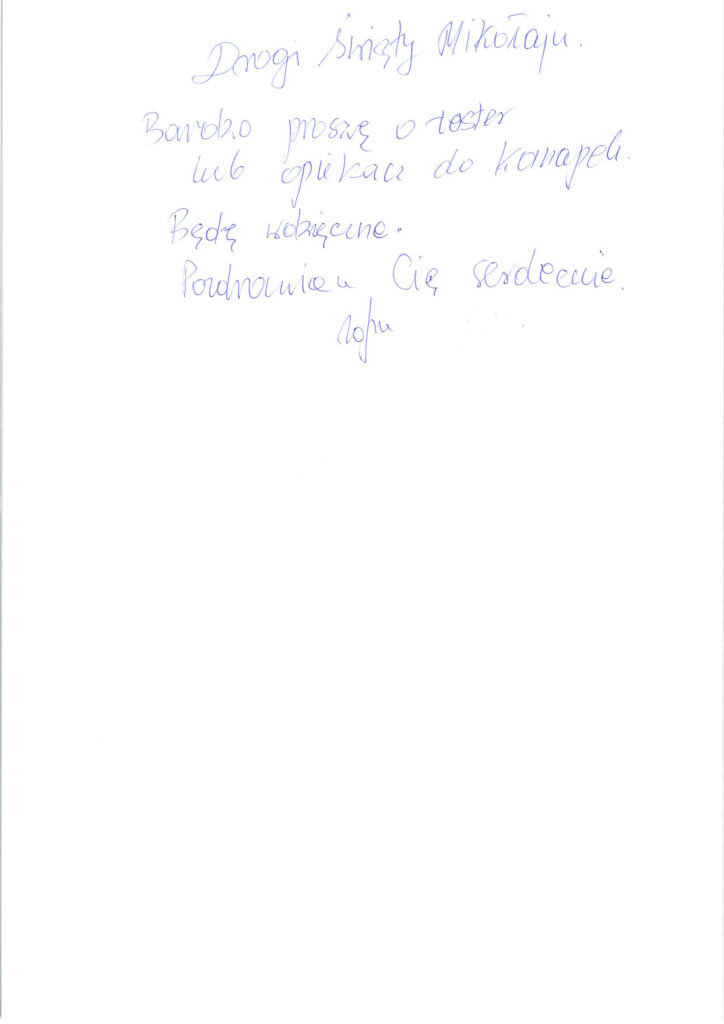 Drogi Święty Mikołaju.
Bardzo proszę o toster
lub opiekacz do kanapek.
Będę wdzięczna.
Pozdrawiam Cię serdecznie.